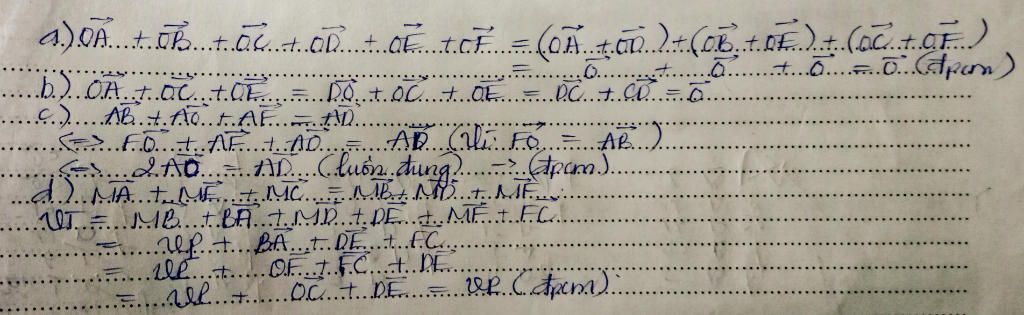 a.) OA→ + OB→ + OC→ + OD→ + OE→ + OF→ = (OA→ + OD→) + (OB→ + OE→) + (OC→ + OF→)
= 0→ + 0→ + 0→ = 0→ (đpcm)
b.) OA→ + OC→ + OE→ = DO→ + OC→ + OE→ = DC→ + CD→ = 0→
c.) AB→ + AO→ + AF→ = AD→
<=> FO→ + AF→ + AO→ = AD→ (Vì: FO→ = AB→)
<=> 2AO→ = AD→ (luôn đúng) -> (đpcm)
d.) MA→ + ME→ + MC→ = MB→ + MD→ + MF→
VT = MB→ + BA→ + MD→ + DE→ + MF→ + FC→
= VP + BA→ + DE→ + FC→
= VP + OF→ + FC→ + DE→
= VP + OC→ + DE→ = VP (đpcm)